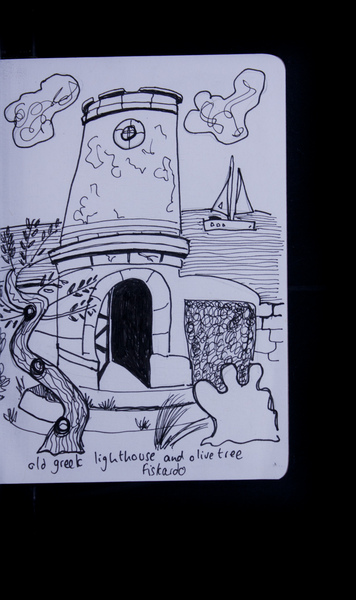 old greek lighthouse and olive tree
fiskardo